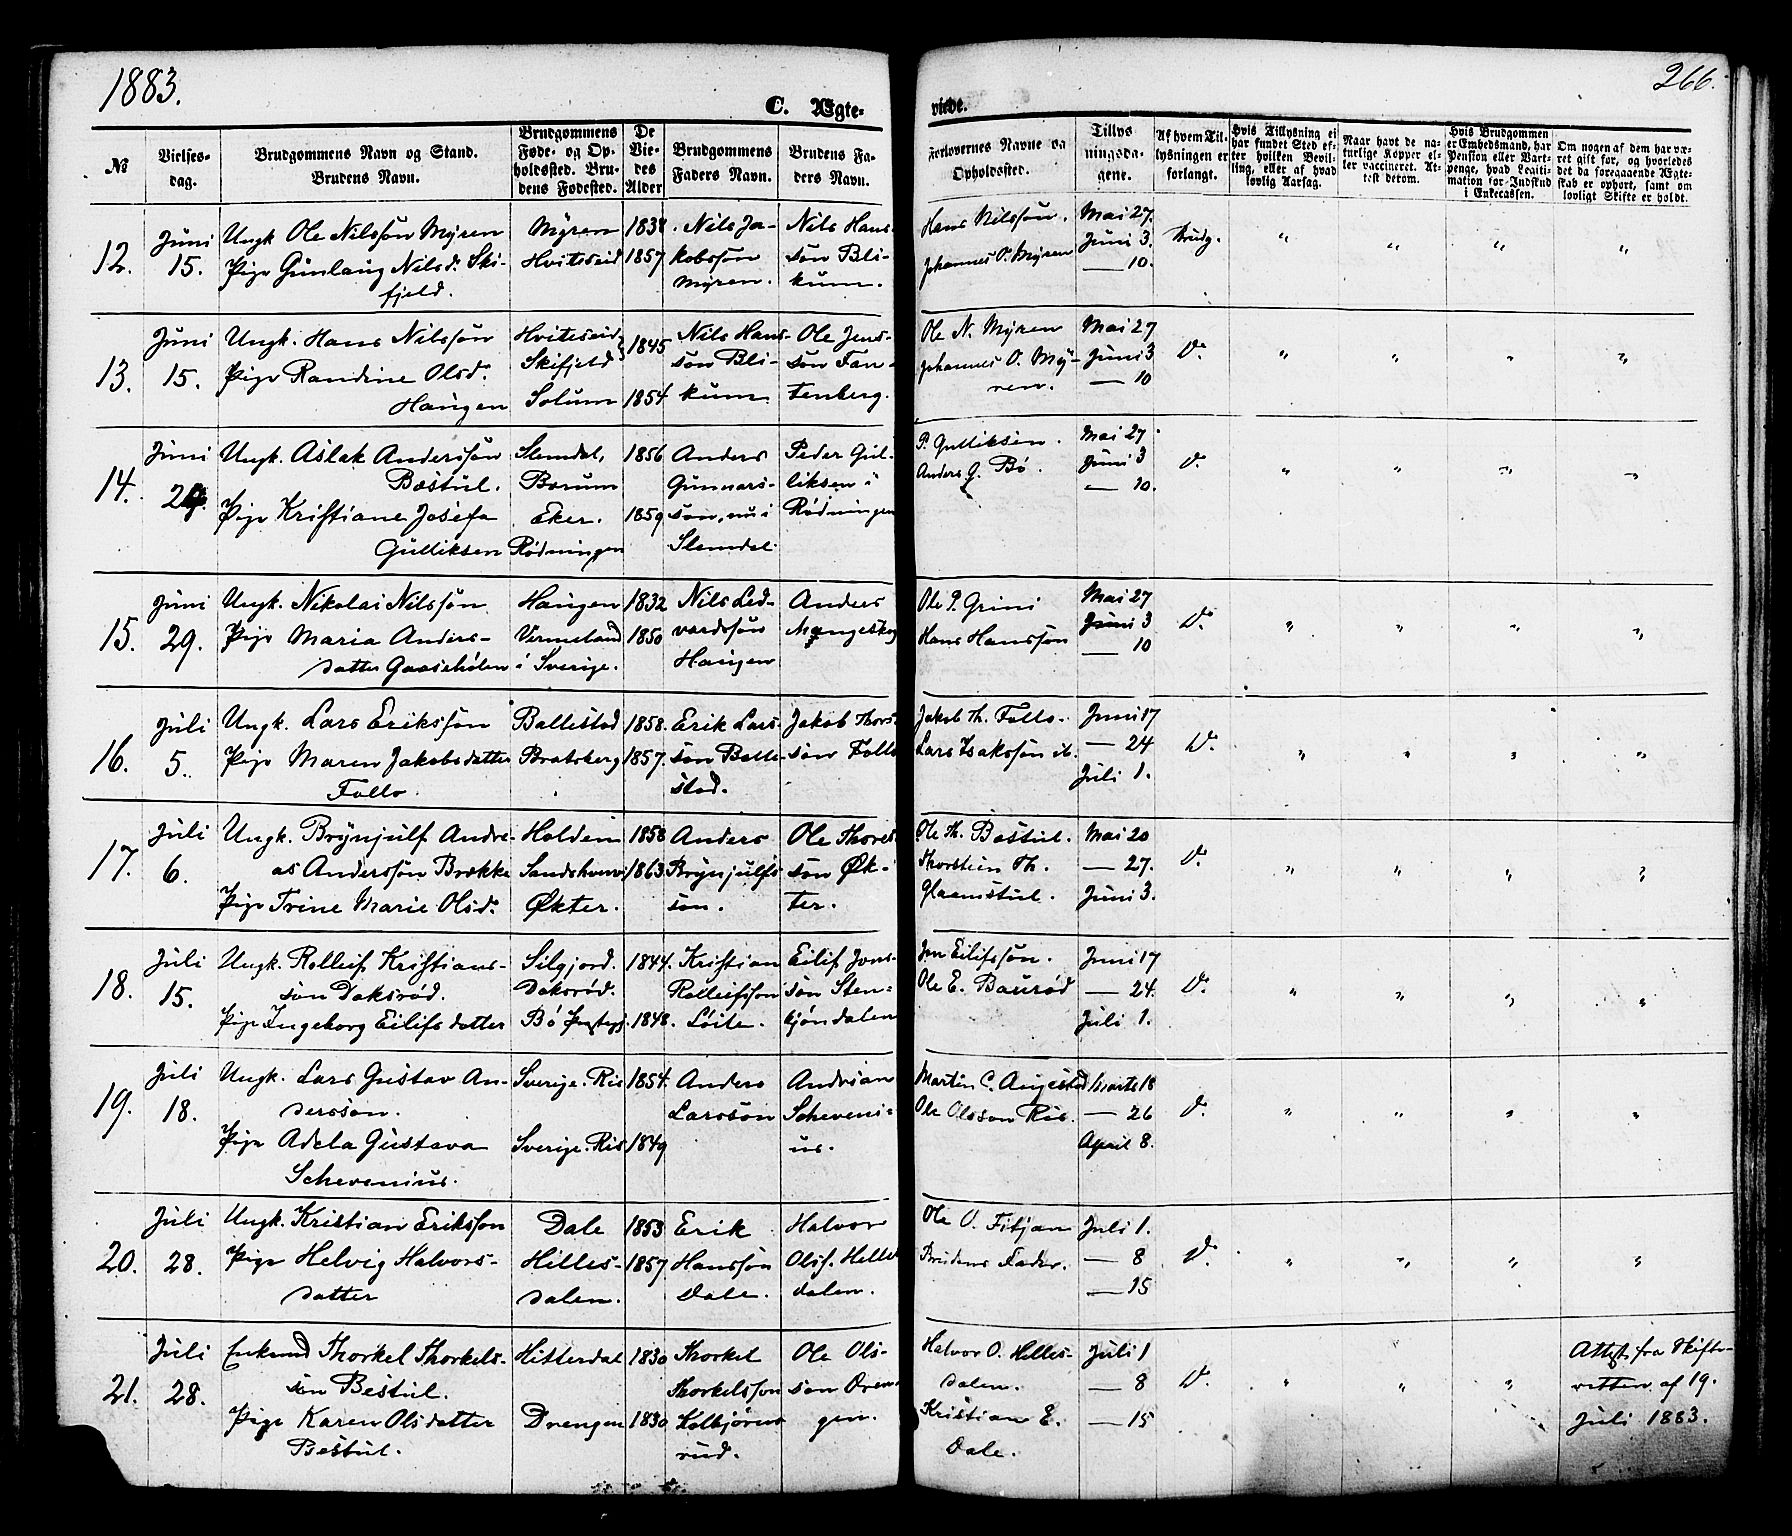 1883.
266.
C. Ægteviede.
№
Vielsesdag.
Brudgommens Navn og Stand.
Brudens Navn.
Brudgommens Føde- og Opholdssted. Brudens Fødested.
De Viedes Alder
Brudgommens Faders Navn.
Brudens Faders Navn.
Forlovernes Navne og Opholdssted.
Tillysningsdagene.
Af hvem Tillysningen er forlangt.
Hvis Tillysning ei har fundet Sted efter hvilken Bevilling, eller af hvad lovlig Aarsag.
Naar havt de naturlige Kopper eller vaccineret. Attest derom.
Hvis Brudgommen er Embedsmand, har Pension eller Vartpenge, hvad Legitimation for Indskud i Enkecassen.
Om nogen af dem har været gift før, og hvorledes det da foregaaende Ægteskab er ophørt, samt om lovligt Skifte er holdt.
12. Juni 15.
Ungk Ole Nilssøn Myren
Pige Gunlaug Nilsd. Skifjeld.
Myren
Hvitseid
1838
1857
Nils Jakobssøn Myren.
Nils Hanssøn Blikum.
Hans Nilssøn.
Johannes O. Myren
Mai 27.
Juni 3.
— 10.
Brudg. " " " "
13. Juni 15.
Ungk. Hans Nilssøn
Pige Randine Olsd. Haugen
Hvitseid
Skifjeld
Solum
1845
1854
Nils Hanssøn Blikum
Ole Jenssøn Fantenberg.
Ole N. Myren
Johannes O. Myren.
Mai 27
Juni 3
— 10
D. " " " "
14. Juni 29.
Ungk. Aslak Anderssøn Bøstul.
Pige Kristiane Josefa Gulliksen
Slemdal,
Bærum
Eker.
Rødningen
1856
1859
Anders Gunnarssøn, nu i Slemdal.
Peder Gulliksen i Rødningen
P. Gulliksen.
Anders G. Bö.
Mai 27
Juni 3
— 10.
D. " " " "
15. Juni 29.
Ungk. Nikolai Nilssøn
Pige Maria Andersdatter Gaaseholen
Haugen
Vermeland i Sverige.
1832
1850
Nils Ledvardssøn Haugen
Anders Mangeskog
Ole P. Grini
Hans Hanssøn
Mai 27
Juni 3
— 10
D. " " " "
16. Juli 5.
Ungk. Lars Erikssøn
Pige Maren Jakobsdatter Follo.
Ballestad
Bratsberg
1858.
1857.
Erik Larssøn Ballestad.
Jakob Thorssøn Follo
Jakob Th. Follo.
Lars Isakssøn ib.
Juni 17
— 24
Juli 1.
D. " " " "
17. Juli 6.
Ungk. Brynjulf Andreas Anderssøn Brække
Pige Trine Marie Olsd.
Holden
Sandshverv
Økter.
1858
1863
Anders Brynjulfssøn.
Ole Thoressøn Økter.
Ole Th. Bøstul.
Thorstein Th. Glaamstul.
Mai 20
— 27.
Juni 3.
D. " " " "
18. Juli 15.
Ungk. Rolleif Kristianssøn Daksrød.
Pige Ingeborg Eilifsdatter
Silgjord.
Daksrød.
Bø Prstgj.
1844.
1848.
Kristian Rolleifssøn Löite.
Eilif Jonssøn Stenkjøndalen
Jon Eilifssøn.
Ole E. Baurød
Juni 17
— 24.
Juli 1.
D. " " " "
19. Juli 18.
Ungk. Lars Gustav Anderssøn.
Pige Adela Gustava Schevenius.
Sverige. Ris
Sverige. Ris
1854.
1849
Anders Larssøn
Andrian Schevenius.
Martin C. Augestad
Ole Olssøn Ris.
Marts 18
— 26
April 8.
D. " " " "
20. Juli 28.
Ungk. Kristian Erikssøn
Pige Helvig Halvorsdatter
Dale
Hillesdalen.
1853
1857
Erik Hanssøn Dale.
Halvor Olsf. Hillesdalen.
Ole O. Fitjan
Brudens Fader.
Juli 1.
— 8
— 15
D. " " " "
21. Juli 28.
Enkemd Thorkel Thorkelssøn Bestul.
Pige Karen Olsdatter Bestul.
Hitterdal
Drengen
1830
1830
Thorkel Thorkelssøn Kolbjørnsrud.
Ole Olssøn
Halvor O. Hillesdalen.
Kristian E. Dale.
Juli 1
— 8
— 15
D. " " "
Attest fra Skifteretten af 19. Juli 1883.